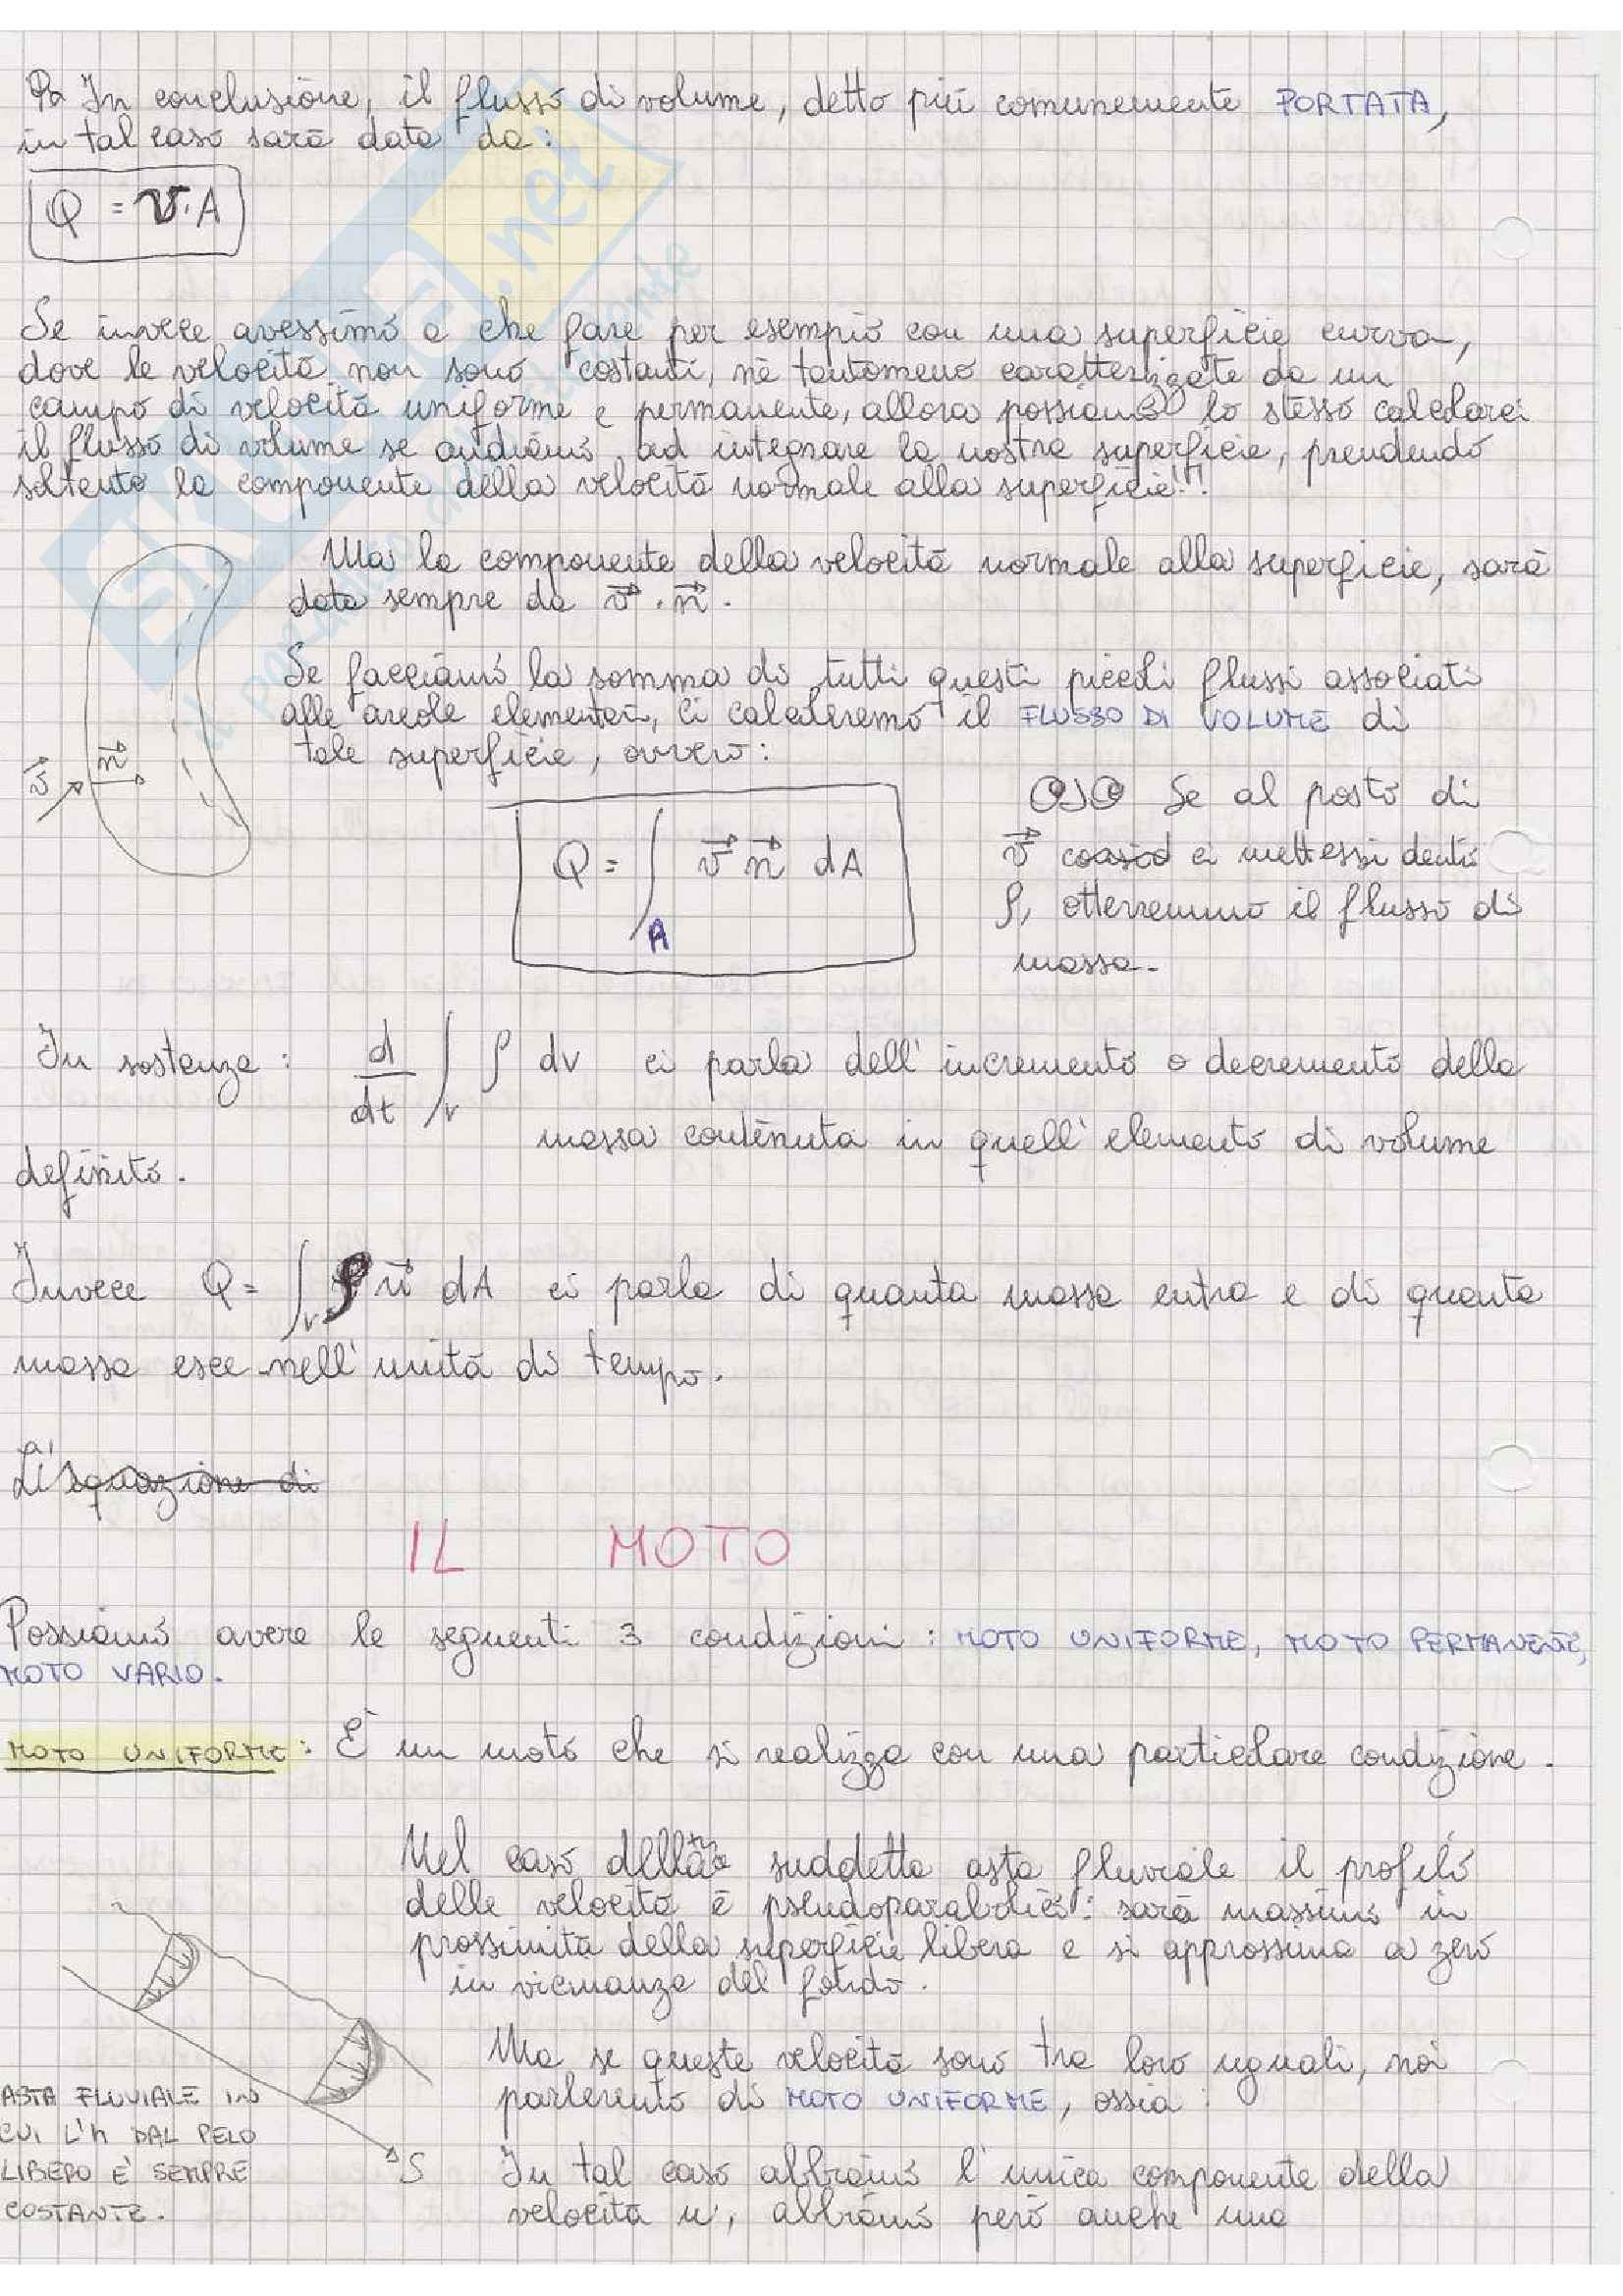 In conclusione, il flusso di volume, detto più comunemente PORTATA,
in tal caso sarà data da:
Q = v·A
Se invece avessimo a che fare per esempio con una superficie curva,
dove le velocità non sono costanti, nè tantomeno caratterizzate da un
campo di velocità uniforme e permanente, allora possiamo lo stesso calcolarci
il flusso di volume se andiamo ad integrare la nostra superficie, prendendo
soltanto la componente della velocità normale alla superficie!!!
Ma la componente della velocità normale alla superficie, sarà
data sempre da v⃗ · n⃗.
Se facciamo la somma di tutti questi piccoli flussi associati
alle areole elementari, ci calcoleremo il FLUSSO DI VOLUME di
tale superficie, ovvero:
v⃗
n⃗
Q = ∫_A v⃗ n⃗ dA
Se al posto di
v⃗ ci mettessi dentro
ρ, otterremmo il flusso di
massa.
In sostanza: d/dt ∫_v ρ dv ci parla dell'incremento o decremento della
massa contenuta in quell'elemento di volume
definito.
Invece Q = ∫_v ρ n⃗ dA ci parla di quanta massa entra e di quanta
massa esce nell'unità di tempo.
L'equazione di
IL MOTO
Possiamo avere le seguenti 3 condizioni: MOTO UNIFORME, MOTO PERMANENTE,
MOTO VARIO.
MOTO UNIFORME: È un moto che si realizza con una particolare condizione.
Nel caso della suddetta asta fluviale il profilo
delle velocità è pseudoparabolico: sarà massimo in
prossimità della superficie libera e si approssima a zero
in vicinanza del fondo.
Ma se queste velocità sono tra loro uguali, noi
parleremo di MOTO UNIFORME, ossia:
ASTA FLUVIALE IN
CUI L'h DAL PELO
LIBERO E' SEMPRE
COSTANTE.
S
In tal caso abbiamo l'unica componente della
velocità u, abbiamo però anche una
SKUOLA.net